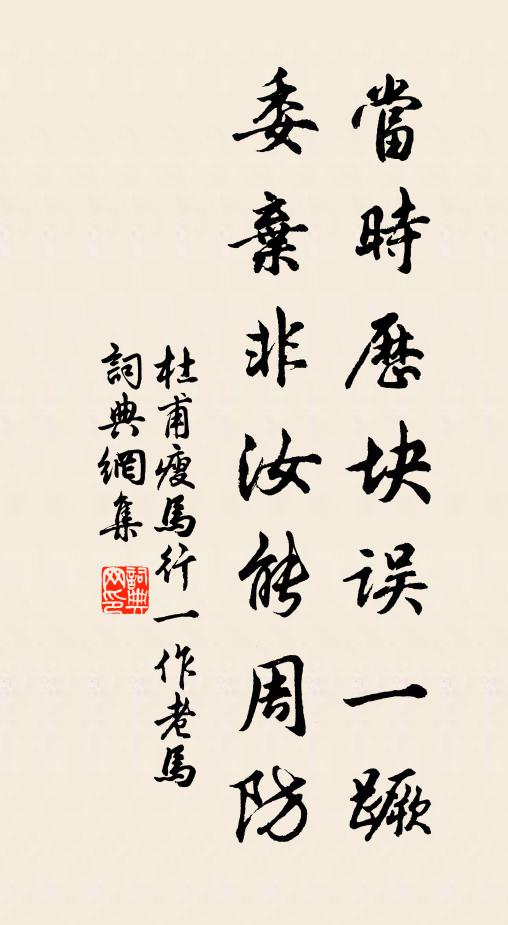 當時歷块误一蹶
委棄非汝能周防
杜甫瘦馬行一作老馬
詞典網集
詞典網印